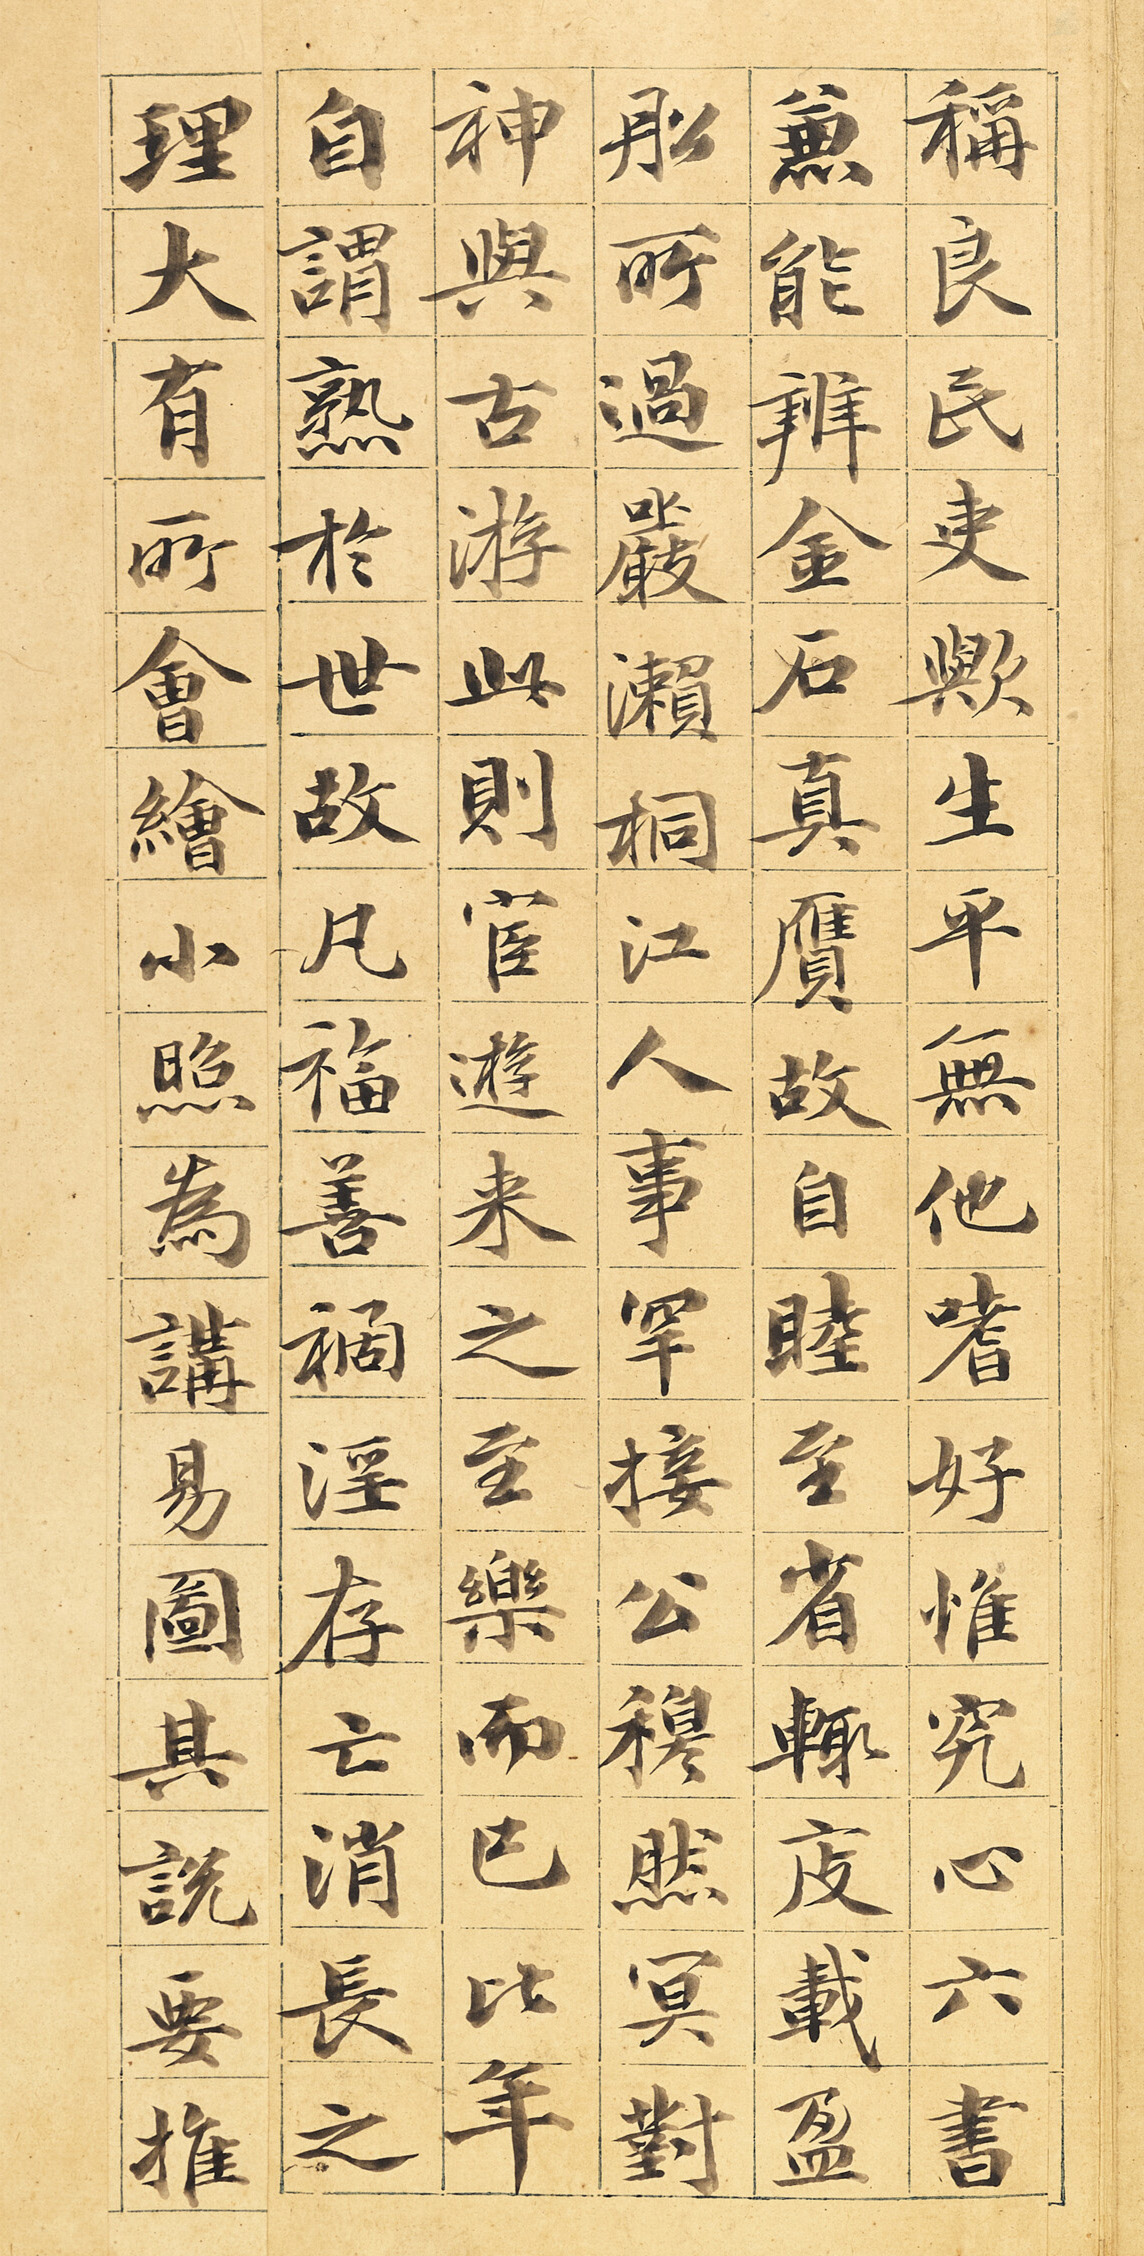 稱良民吏歟生平無他嗜好惟究心六書
兼能辨金石真贋故自睦至省輒庋載盈
船所過嚴瀨桐江人事罕接公穆然冥對
神與古游此則宦遊来之至樂而已比年
自謂熟於世故凡福善禍淫存亡消長之
理大有所會繪小照為講易圖其說要推